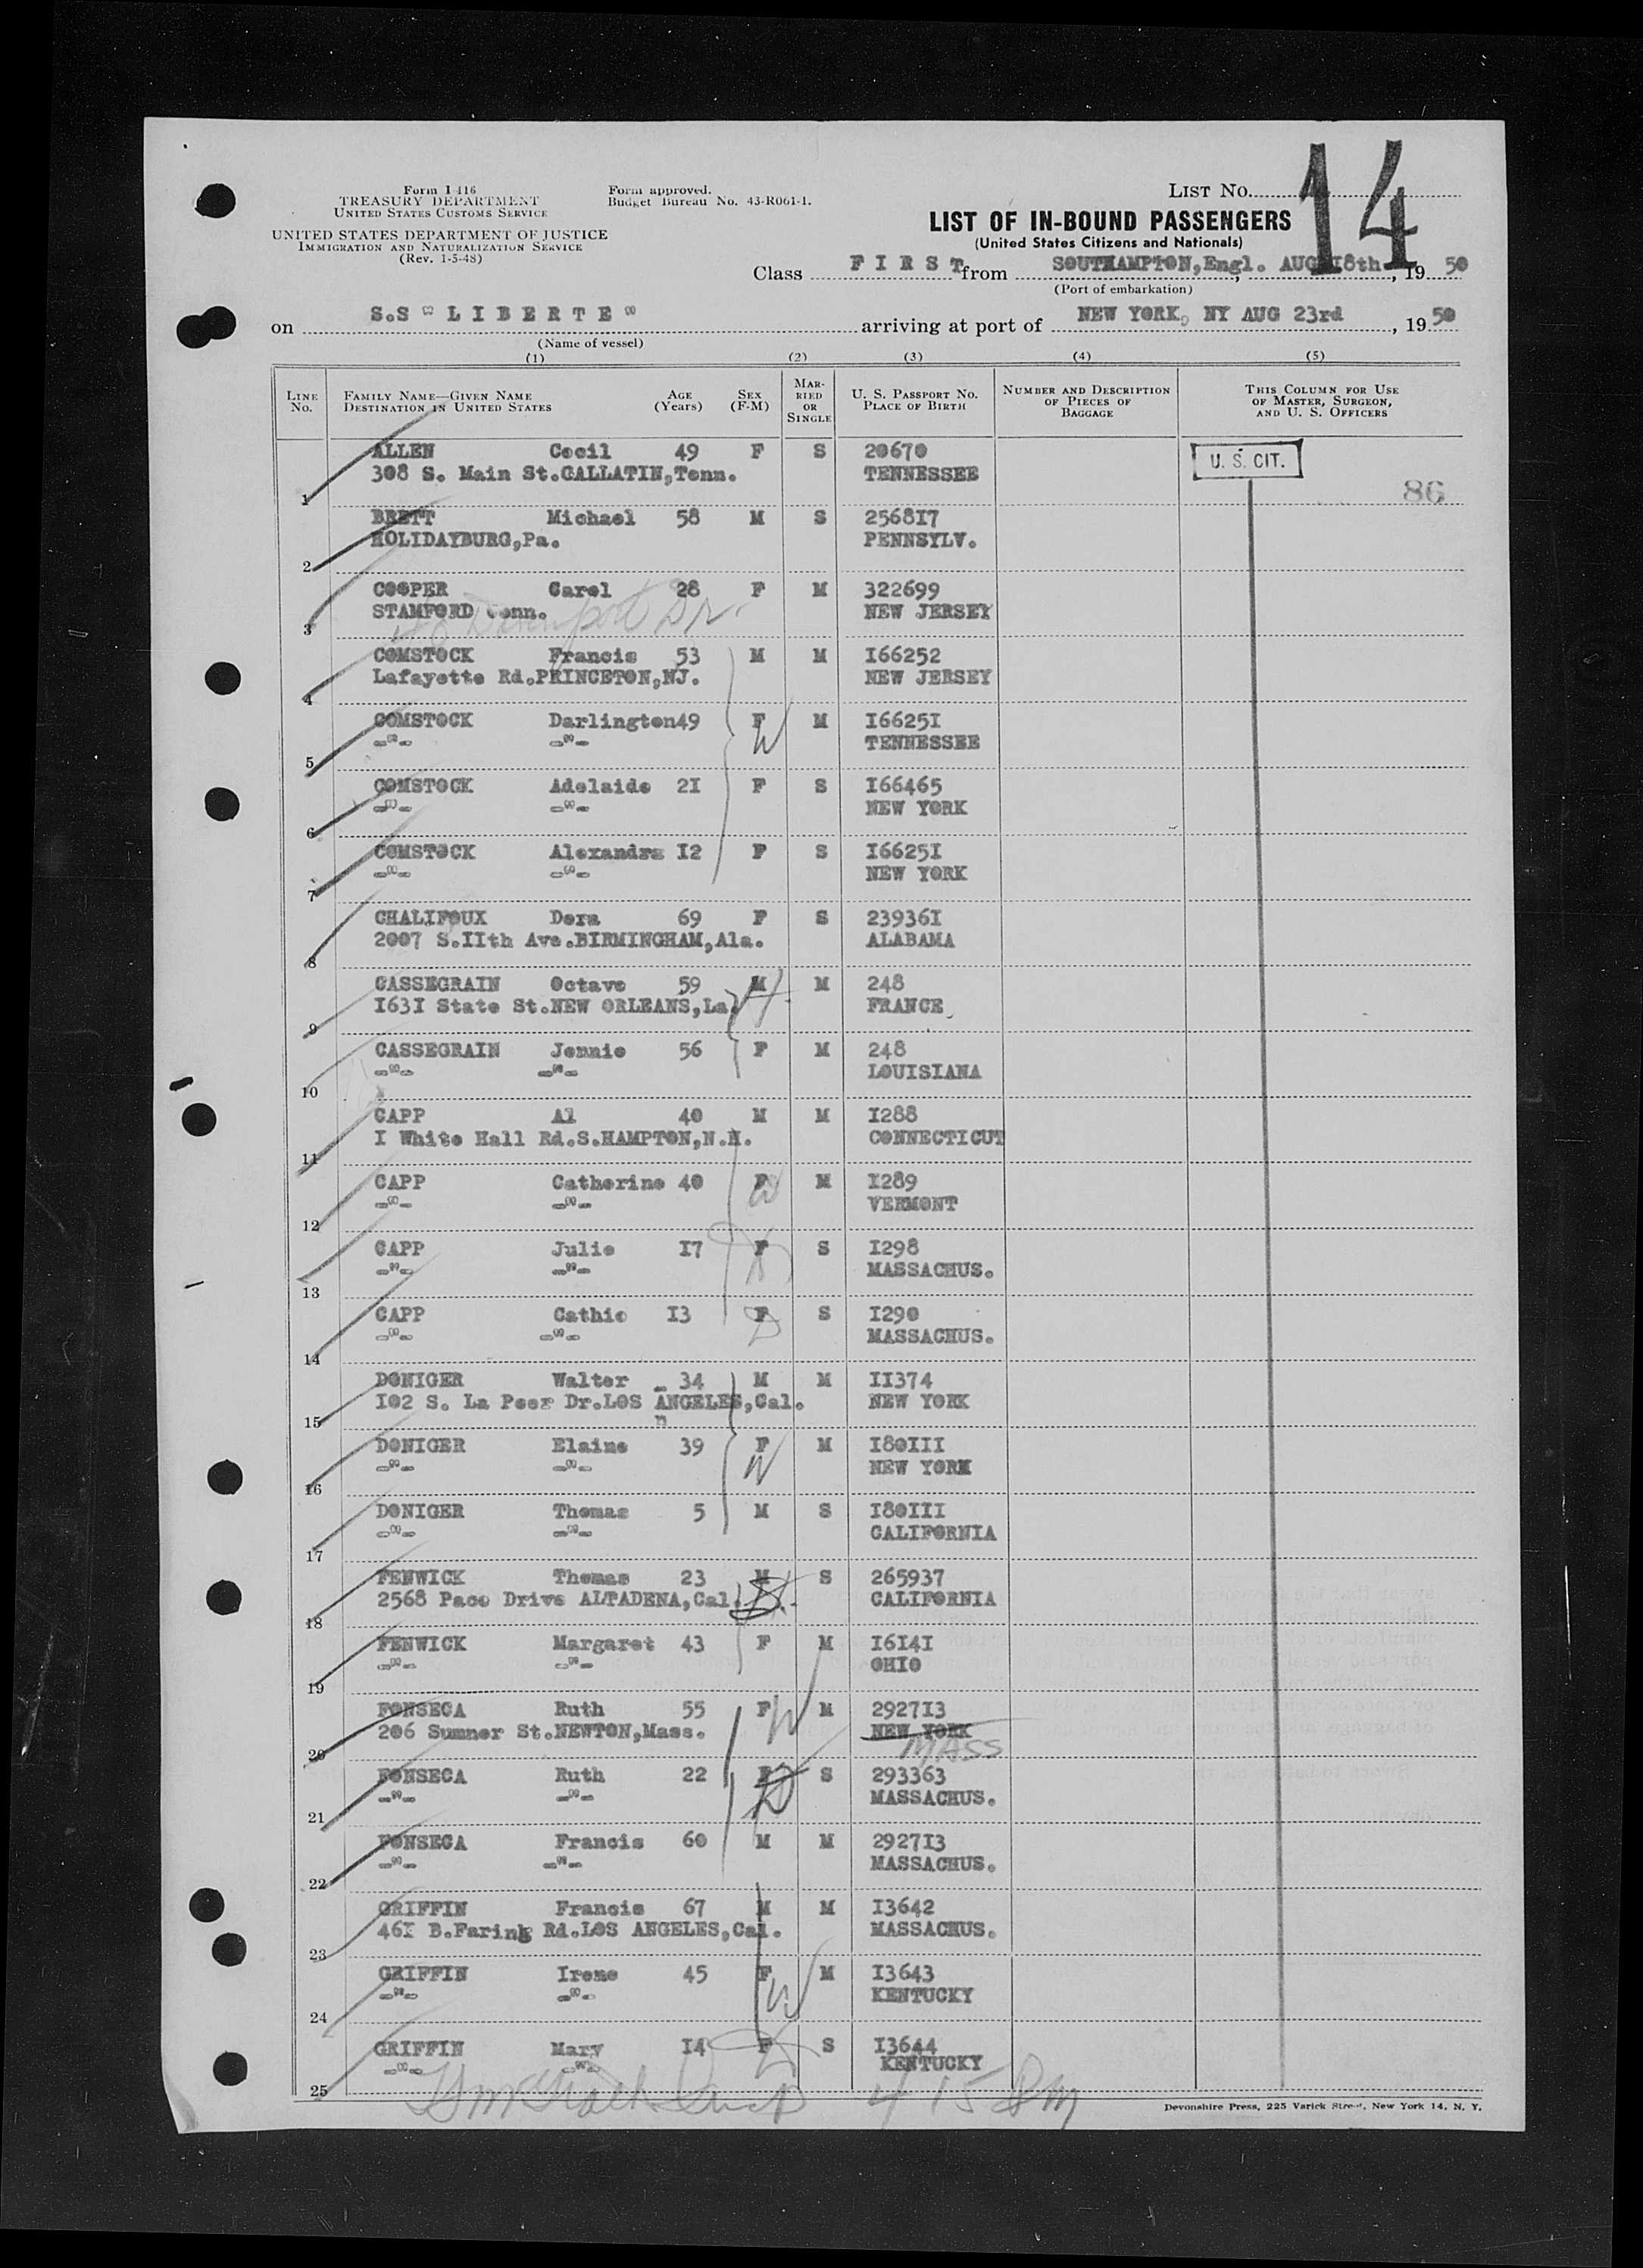 Form I-416
TREASURY DEPARTMENT
UNITED STATES CUSTOMS SERVICE
UNITED STATES DEPARTMENT OF JUSTICE
IMMIGRATION AND NATURALIZATION SERVICE
(Rev. 1-5-48)
Form approved.
Budget Bureau No. 43-R061-1.
LIST No. 14
LIST OF IN-BOUND PASSENGERS
(United States Citizens and Nationals)
Class F I R S T from SOUTHAMPTON,Engl. AUG 18th, 19 50
(Port of embarkation)
on S.S " L I B E R T E " arriving at port of NEW YORK, NY AUG 23rd, 19 50
(Name of vessel)
(1) (2) (3) (4) (5)
LINE No. FAMILY NAME—GIVEN NAME DESTINATION IN UNITED STATES AGE (Years) SEX (F-M) MARRIED OR SINGLE U. S. PASSPORT No. PLACE OF BIRTH NUMBER AND DESCRIPTION OF PIECES OF BAGGAGE THIS COLUMN FOR USE OF MASTER, SURGEON, AND U. S. OFFICERS
ALLEN Cecil 49 F S 20670 U. S. CIT.
308 S. Main St.GALLATIN,Tenn. TENNESSEE
1 86
BRETT Michael 58 M S 2568I7
HOLIDAYBURG,Pa. PENNSYLV.
2
COOPER Carol 28 F M 322699
STAMFORD Conn. Davenport Dr. NEW JERSEY
3
COMSTOCK Francis 53 M M I66252
Lafayette Rd.PRINCETON,NJ. NEW JERSEY
4
COMSTOCK Darlington49 F W M I6625I
-"- -"- TENNESSEE
5
COMSTOCK Adelaide 2I F S I66465
-"- -"- NEW YORK
6
COMSTOCK Alexandra I2 F S I6625I
-"- -"- NEW YORK
7
CHALIFOUX Dora 69 F S 23936I
2007 S.IIth Ave.BIRMINGHAM,Ala. ALABAMA
8
CASSEGRAIN Octave 59 M H M 248
I63I State St.NEW ORLEANS,La. FRANCE
9
CASSEGRAIN Jennie 56 F M 248
-"- -"- LOUISIANA
10
CAPP Al 40 M M I288
I White Hall Rd.S.HAMPTON,N.H. CONNECTICUT
11
CAPP Catherine 40 F W M I289
-"- -"- VERMONT
12
CAPP Julie I7 F D S I298
-"- -"- MASSACHUS.
13
CAPP Cathie I3 F D S I290
-"- -"- MASSACHUS.
14
DONIGER Walter 34 M M II374
I02 S. La Peer Dr.LOS ANGELES,Cal. NEW YORK
15
DONIGER Elaine 39 F W M I80III
-"- -"- NEW YORK
16
DONIGER Thomas 5 M S I80III
-"- -"- CALIFORNIA
17
FENWICK Thomas 23 M S S 265937
2568 Paco Drive ALTADENA,Cal. CALIFORNIA
18
FENWICK Margaret 43 F M I6I4I
-"- -"- OHIO
19
FONSECA Ruth 55 F W M 2927I3
206 Sumner St.NEWTON,Mass. NEW YORK
20 MASS
FONSECA Ruth 22 F D S 293363
-"- -"- MASSACHUS.
21
FONSECA Francis 60 M M 2927I3
-"- -"- MASSACHUS.
22
GRIFFIN Francis 67 M M I3642
46I B.Faring Rd.LOS ANGELES,Cal. MASSACHUS.
23
GRIFFIN Irene 45 F W M I3643
-"- -"- KENTUCKY
24
GRIFFIN Mary I4 F D S I3644
-"- -"- KENTUCKY
25 4 15 PM
Devonshire Press, 225 Varick Street, New York 14, N. Y.